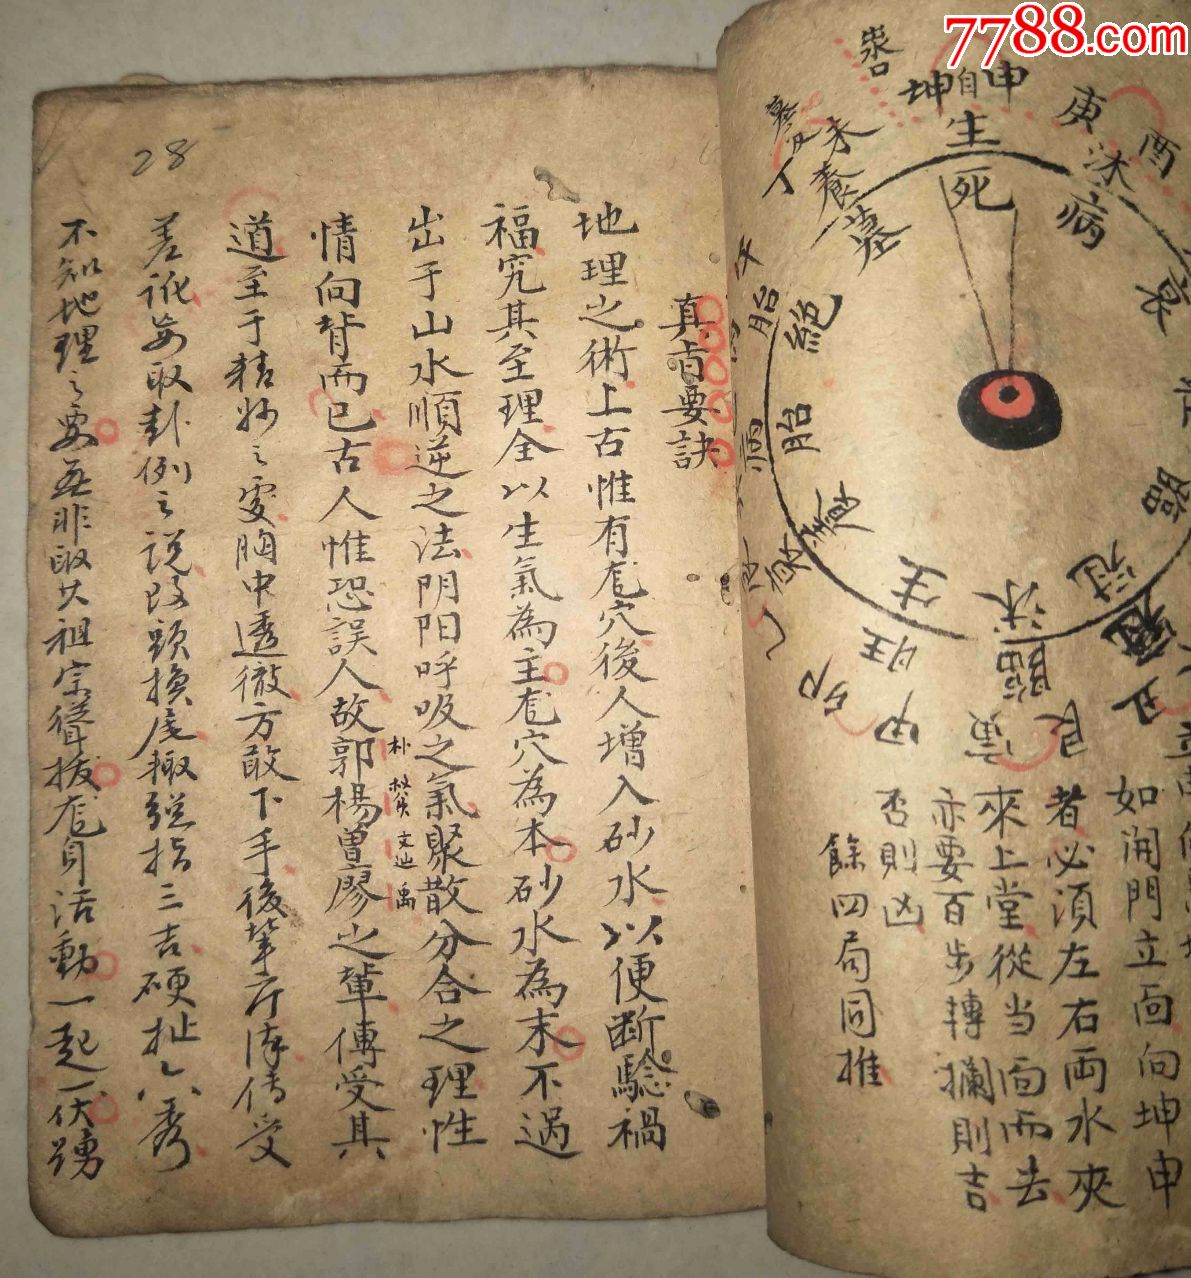 7788.com
28
如開門立向向坤申
者必須左右両水夾
來上堂從当面而去
亦要百步轉攔則吉
否則凶
餘四局同推
坤
申
庚
酉
生
死
沐
病
未
養
墓
丁
胎
絕
胎
病
生
旺
卯
甲
寅
艮
丑
冠
臨
真旨要訣
地理之術上古惟有龙穴後人增入砂水以便断驗禍
福究其至理全以生氣為主龙穴為本砂水為末不過
出于山水順逆之法阴阳呼吸之氣聚散分合之理性
情向背而已古人惟恐誤人故郭楊曽廖之輩傳受其
朴 文迪 禹
道至于精妙之处胸中透徹方敢下手後輩庁俗传受
差讹妄取卦例之説改頭換尾輙強指三吉硬扯六秀
不知地理之要無非取其祖宗聳拔龙身活動一起一伏踴